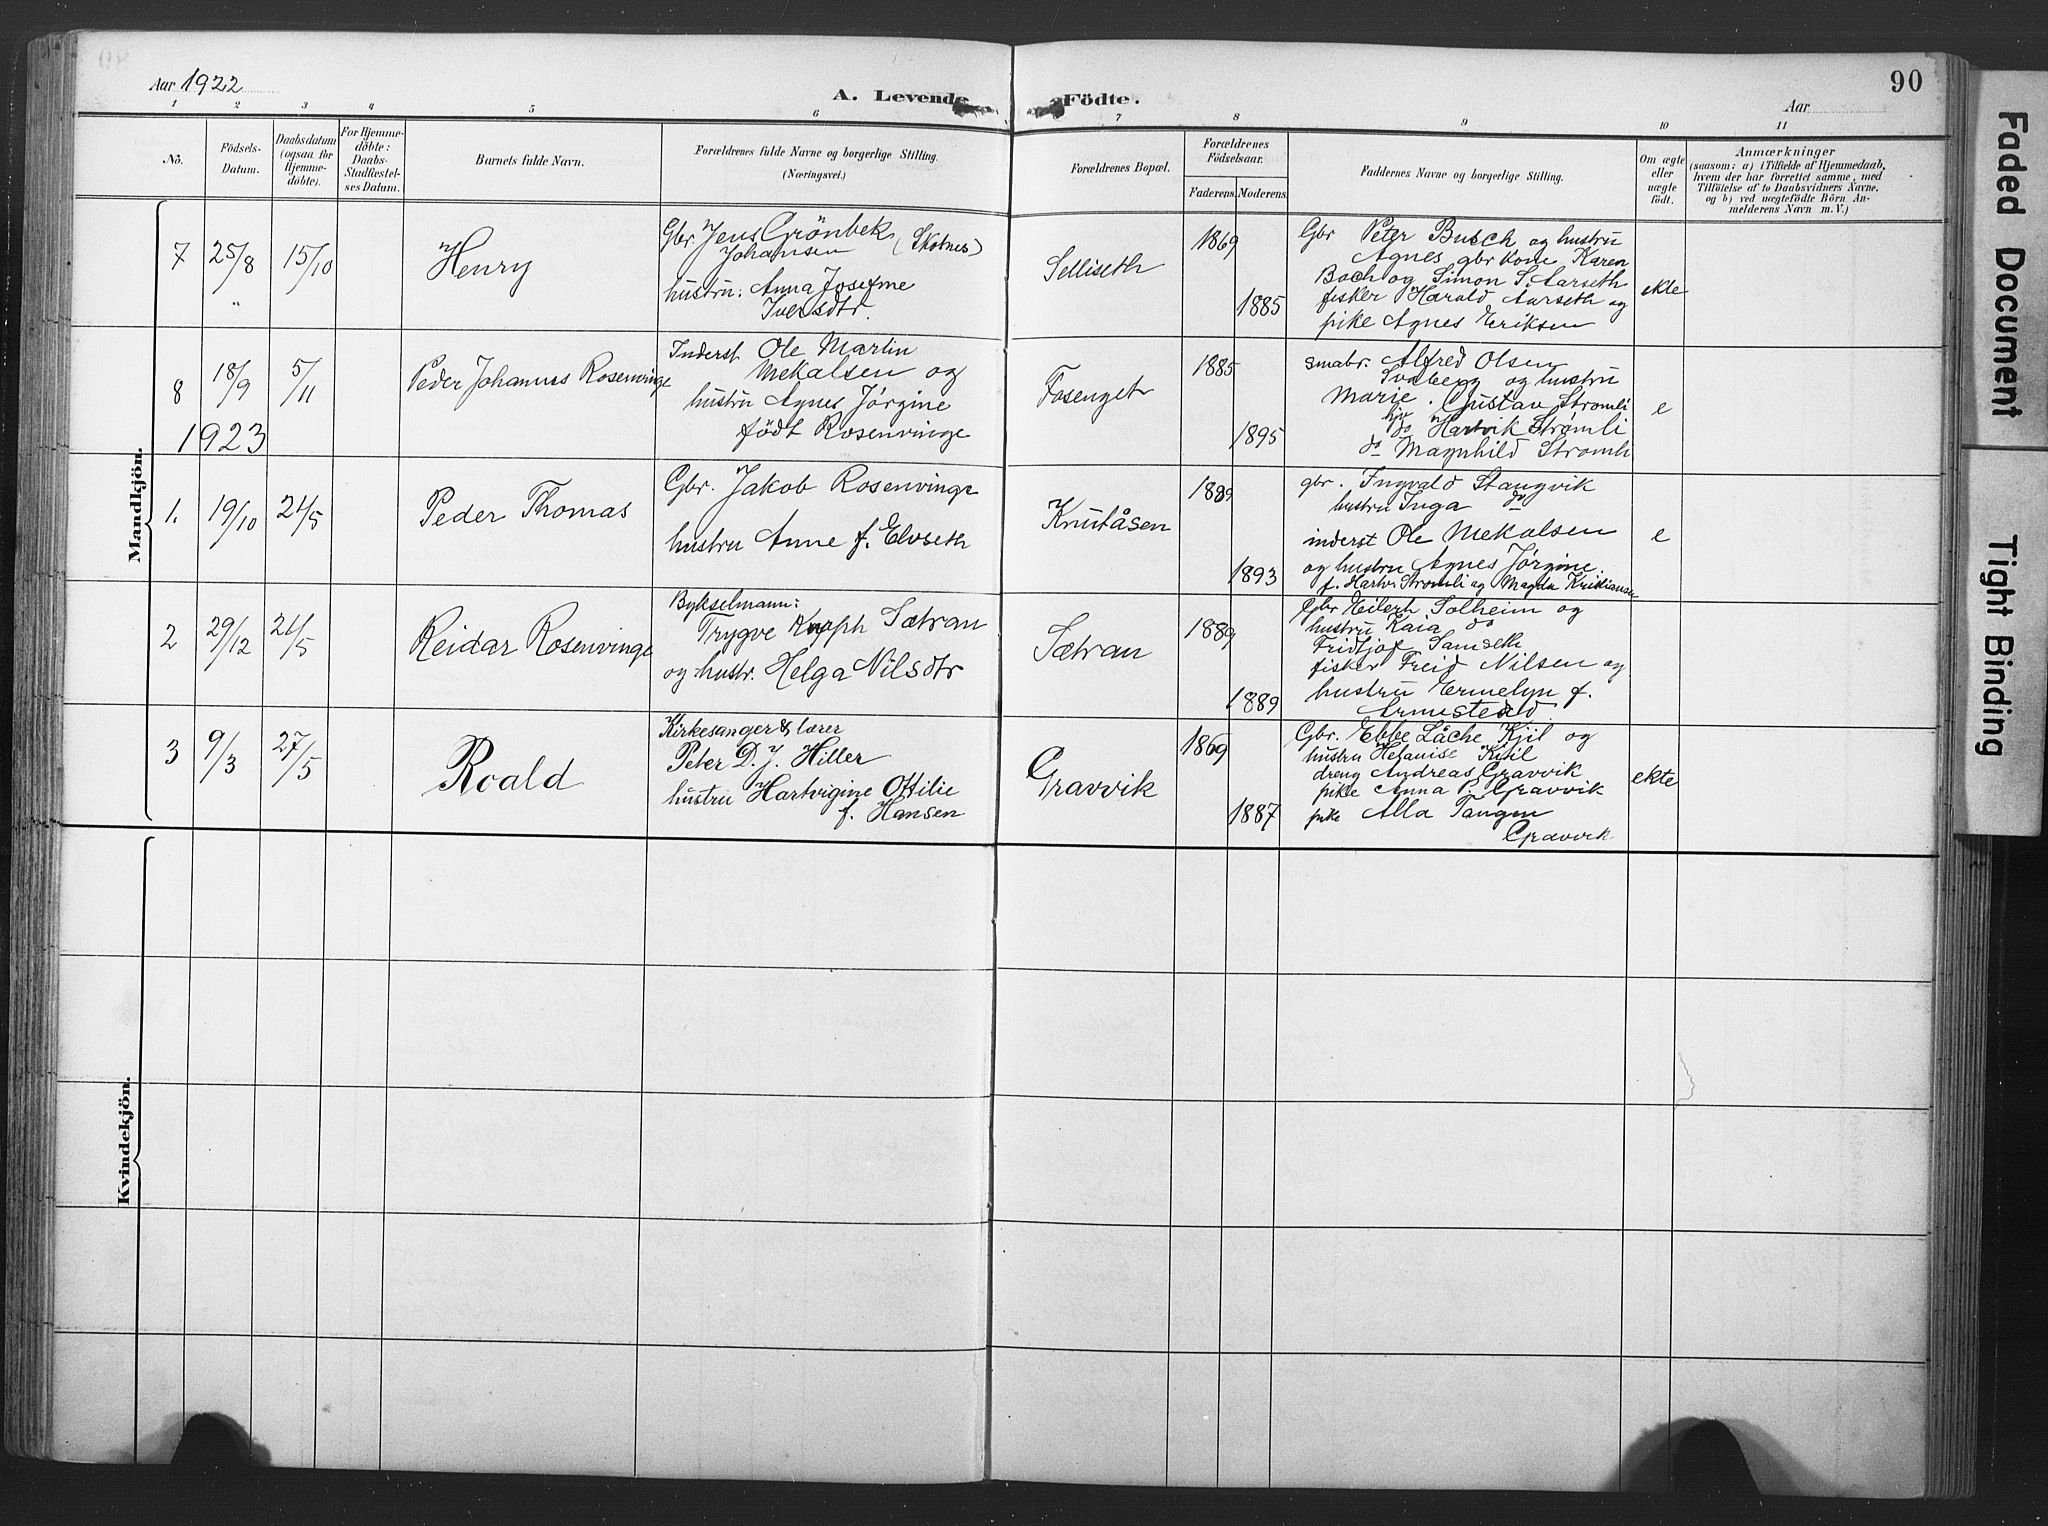 Aar 1922
A. Levende
Födte.
90
Aar
1 2 3 4 5 6 7 8 9 10 11
No.
Födsels-
Datum.
Daabsdatum
(ogsaa for
Hjemme-
döbte).
For Hjemme-
döbte:
Daabs-
Stadfæstel-
ses Datum.
Barnets fulde Navn.
Forældrenes fulde Navne og borgerlige Stilling.
(Næringsvei.)
Forældrenes Bopæl.
Forældrenes
Födselsaar.
Faderens. Moderens.
Faddernes Navne og borgerlige Stilling.
Om ægte
eller
uægte
födt.
Anmærkninger
(saasom: a) i Tilfælde af Hjemmedaab,
hvem der har forrettet samme, med
Tilföielse af to Daabsvidners Navne,
og b) ved uægtefödte Börn An-
melderens Navn m. V.)
Mandkjön.
7 25/8 15/10
Henry
Gbr. Jens Grönbek
Johansen (Skotnes)
hustru: Anna Josefine
Iversdtr.
Selliseth
1869
1885
Gbr Peter Busch og hustru
Agnes gbrkone Karen
Boch og Simon S. Aarseth
fisker Harald Aarseth og
pike Agnes Eriksen
ekte
8 18/9 5/11
Peder Johannes Rosenvinge
Inderst Ole Martin
Mekalsen og
hustru Agnes Jørgine
født Rosenvinge
Fosenget
1885
1895
smabr. Alfred Olsen
Svaberg og hustru
Marie. Gustav Strømli
do Hartvik Strømli
do Magnhild Strømli
e
1923
1. 19/10 21/5
Peder Thomas
Gbr. Jakob Rosenvinge
hustru Anne f. Elvseth
Knutåsen
1889
1893
gbr. Ingvald Stangvik
hustru Inga do
inderst Ole Mekalsen
og hustru Agnes Jørgine.
f. Hartv. Strømli og Magda Kristiansen
e
2 29/12 21/5
Reidar Rosenvinge
Bykselmann:
Trygve Knoph Sætran
og hustr. Helga Nilsdtr
Sætran
1889
1889
Gbr Eilert Solheim og
hustru Kaia do
Fridtjof Samseth
fisker Freid Nilsen og
hustru Ermelyn f.
Armested
3 9/3 27/5
Roald
Kirkesanger & lærer
Peter D. J. Hiller
hustru Hartvigine Ottilie
f. Hansen
Gravvik
1869
1887
Gbr. Ebbe Låche Kjil og
hustru Helanise Kjiil
dreng Andreas Gravvik
pike Anna P. Gravvik
pike Alla Tangen
Gravvik
ekte
Kvindekjön.
Faded Document
Tight Binding